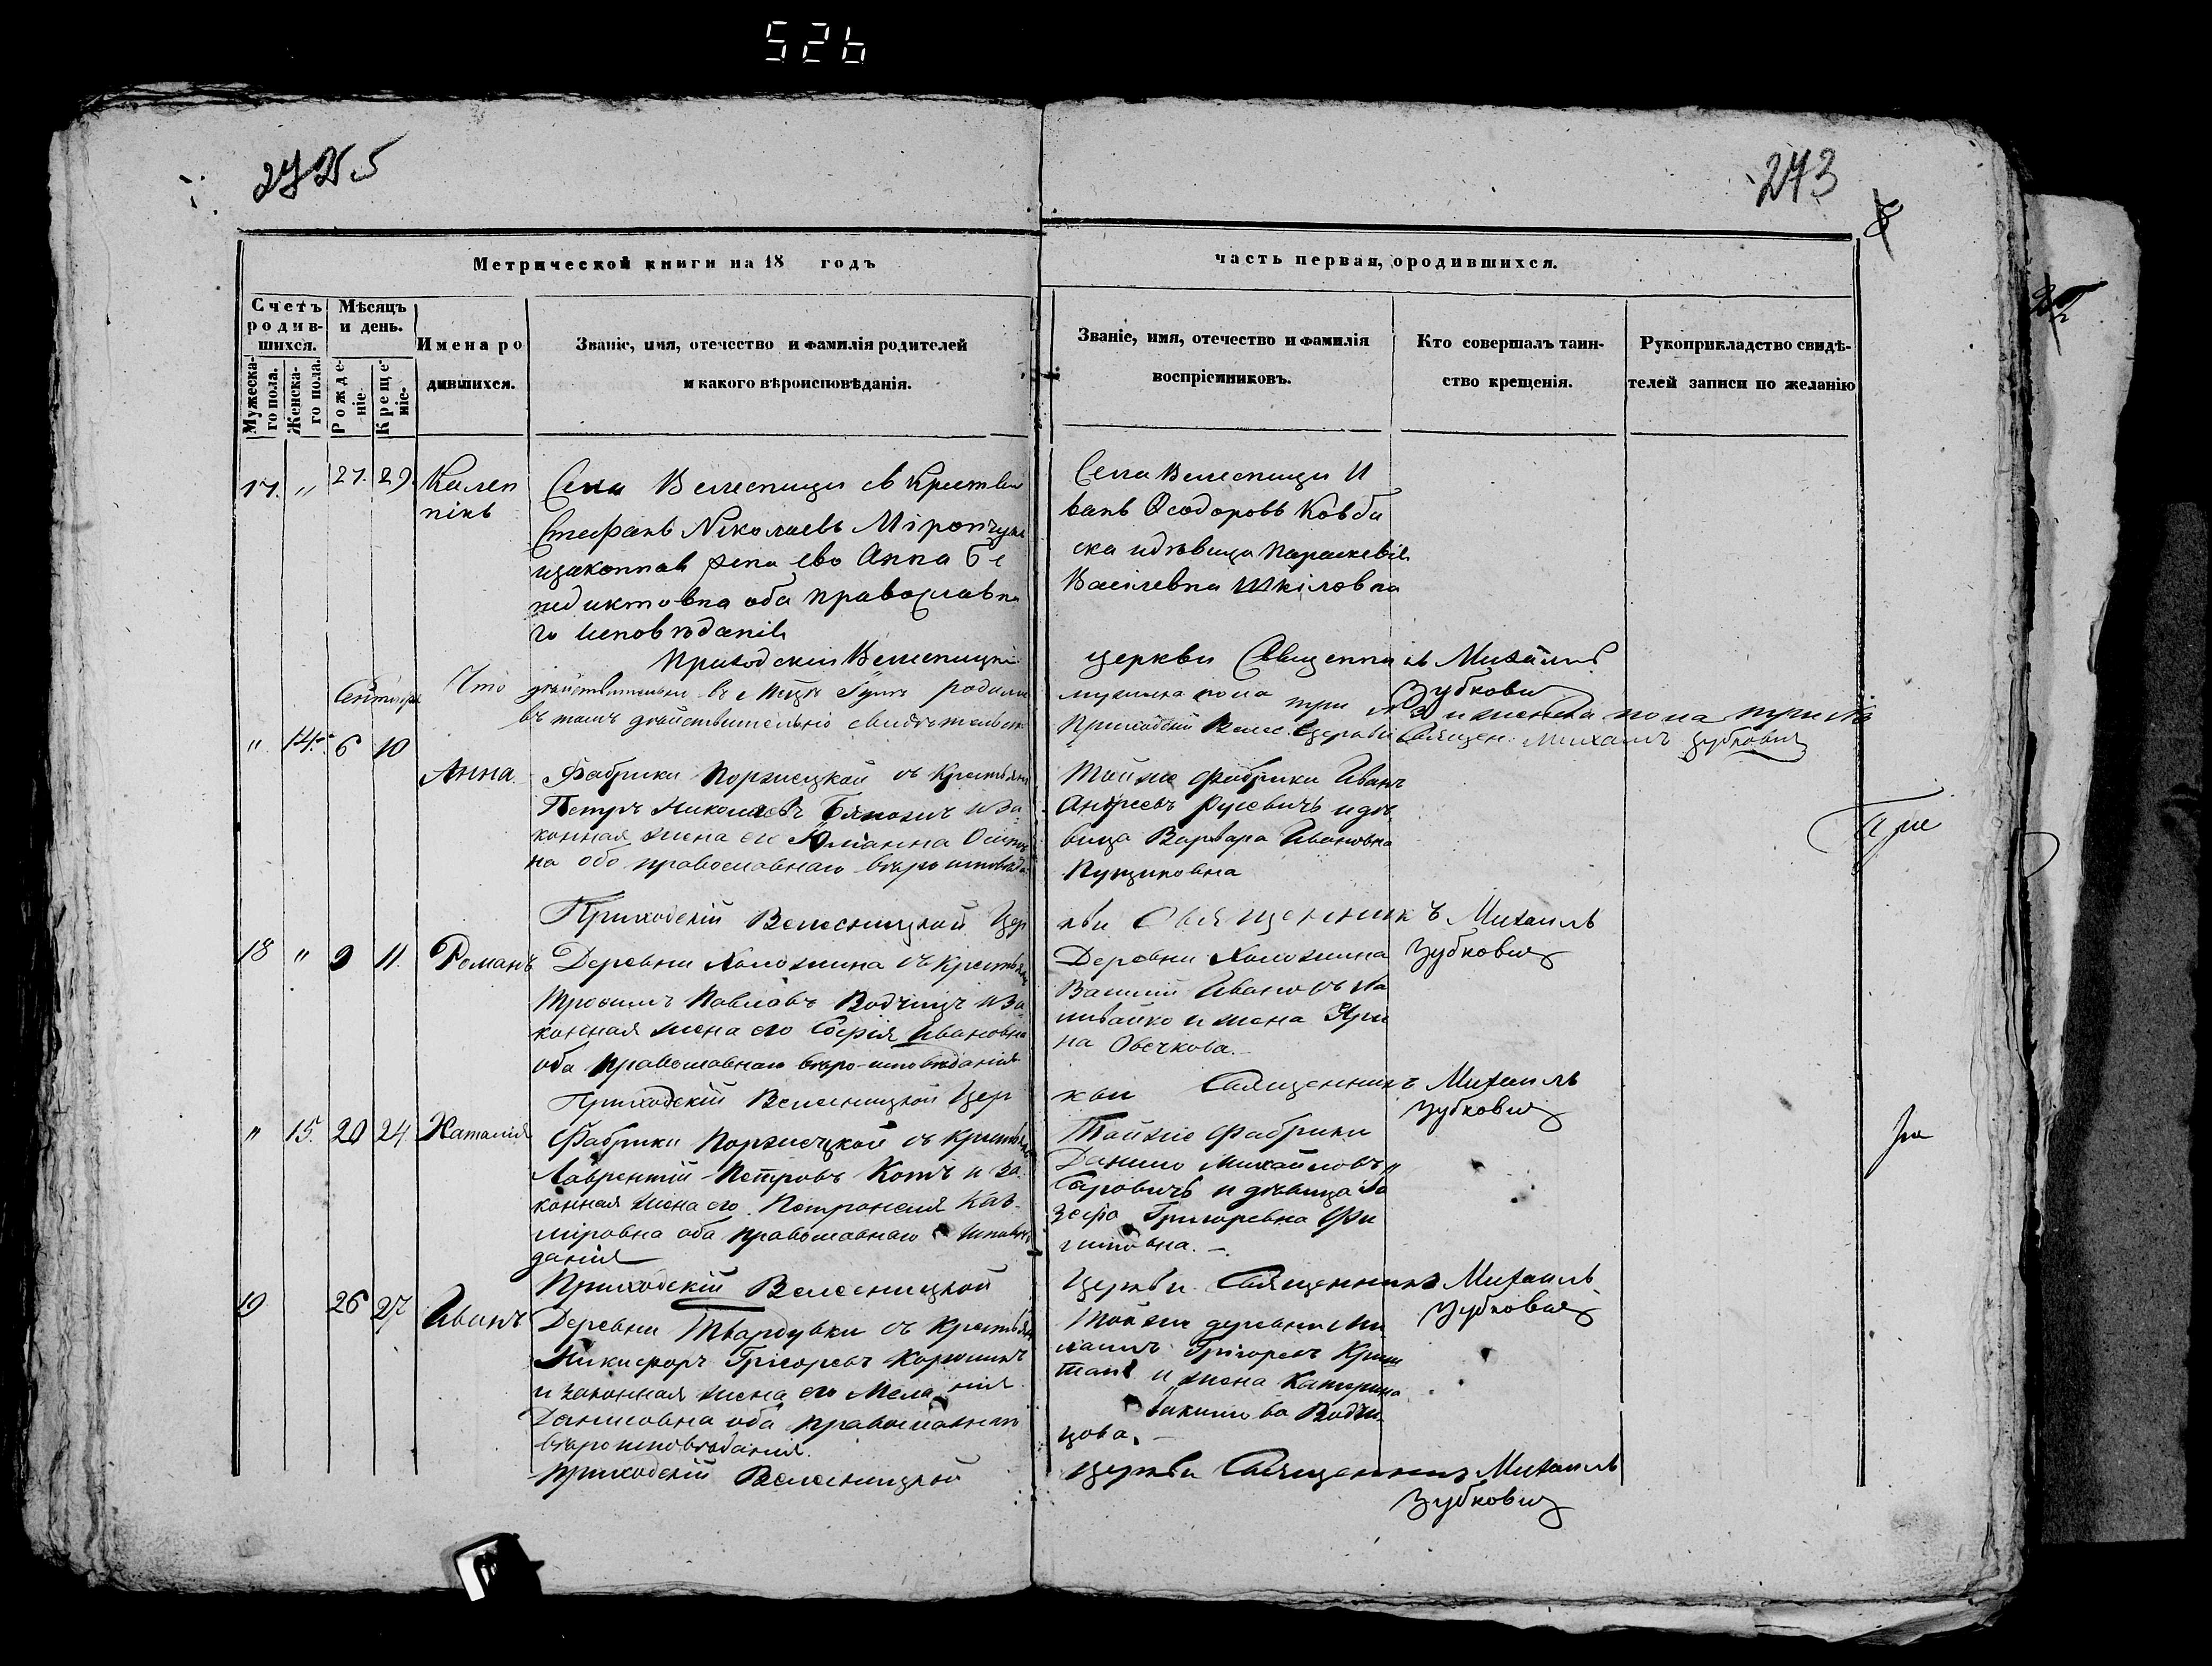 526
273
Метрической книги на 18 годъ
часть первая, ородившихся.
Счетъ родив-шихся.
Мѣсяцъ и день.
Мужеска-го пола.
Женска-го пола.
Рожде-ніе.
Креще-ніе.
Имена родившихся.
Званіе, имя, отечество и фамилія родителей
и какого вѣроисповѣданія.
Званіе, имя, отечество и фамилія
воспріемниковъ.
Кто совершалъ таин-
ство крещенія.
Рукоприкладство свидѣ-
телей записи по желанію
17. " 27. 29.
Села Велесници
Стефанъ Николаевъ Мірончукъ
изаконная жена ево Анна Бе
недиктовна оба православна
го исповѣданія
Села Велесници И
ванъ Ѳеодоровъ Ковба
ска идѣвица Параскевія
Васілевна Шкіловна
Приходскій Велесницкій
церкви Священникъ Михаилъ
Зубкович
Сентября
Что дѣйствительно въ родил
въ томъ дѣйствительно свидѣтельст
мужеска пола три и женска пола три
Приходскій Велес. Церкви Священ. Михаилъ Зубкович
" 14. 6 10
Анна
Фабрики Поржецкой съ Крестьян
Петръ Николаевъ и За
конная жена его Юліанна Осипов
на оба православнаго вѣроисповѣда
Тойже фабрики Иванъ
Андреевъ Русевичъ идѣ
вица Варвара Ивановна
Пущиковна
Приходскій Велесницкой Цер
кви Священникъ Михаилъ
Зубкович
18 " 9 11.
Романъ
Деревни Холожина съ Крестьян
Трофимъ Павловъ Водчицъ и За
конная жена его Софія Ивановна
оба православнаго вѣро-исповѣданія
Деревни Холожина
Василій Ивановъ На
ливайко и жена Яри
на Овечкова.
Приходскій Велесницкой Цер
кви Священникъ Михаилъ
Зубкович
" 15. 20 24
Наталия
Фабрики Поржецкой съ Крестьян
Лаврентій Петровъ Котъ и за
конная жена его Петронеля Каз
мировна оба православнаго исповѣ
данія
Тойже фабрики
Данило Михайловъ
и дѣвица Іо
зефа Григоревна Фи
липовна.
Приходскій Велесницкой
Церкви Священникъ Михаилъ
Зубкович
19 26 27
Иванъ
Деревни Твардувки съ Крестьян
Никифоръ Грігоревъ
и законная жена его Меланія
Даниловна оба православнаго
вѣроисповѣданія.
Тойже деревни Ми
хаилъ Грігоревъ
и жена Катерина
Водчи
цова.
Приходскій Велесницкой
Церкви Священникъ Михаилъ
Зубкович